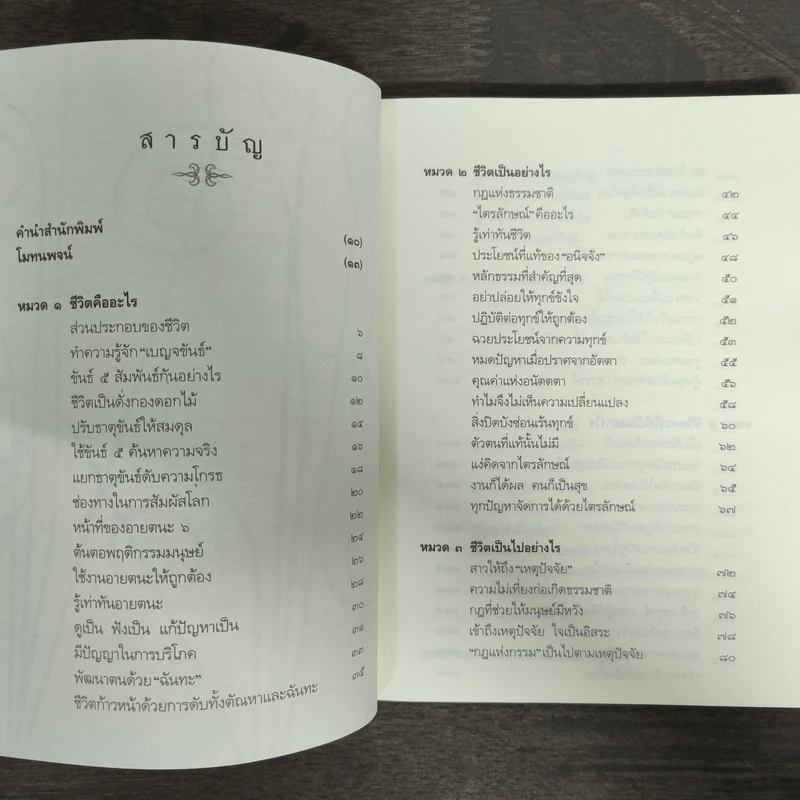 สารบัญ
คำนำสำนักพิมพ์ (๑๐)
โมทนพจน์ (๑๓)
หมวด ๑ ชีวิตคืออะไร
ส่วนประกอบของชีวิต ๖
ทำความรู้จัก "เบญจขันธ์" ๘
ขันธ์ ๕ สัมพันธ์กันอย่างไร ๑๐
ชีวิตเป็นดั่งกองดอกไม้ ๑๒
ปรับธาตุขันธ์ให้สมดุล ๑๔
ใช้ขันธ์ ๕ ค้นหาความจริง ๑๖
แยกธาตุขันธ์ดับความโกรธ ๑๘
ช่องทางในการสัมผัสโลก ๒๐
หน้าที่ของอายตนะ ๖ ๒๒
ต้นตอพฤติกรรมมนุษย์ ๒๔
ใช้งานอายตนะให้ถูกต้อง ๒๖
รู้เท่าทันอายตนะ ๒๘
ดูเป็น ฟังเป็น แก้ปัญหาเป็น ๓๐
มีปัญญาในการบริโภค ๓๑
พัฒนาตนด้วย "ฉันทะ" ๓๓
ชีวิตก้าวหน้าด้วยการดับทั้งตัณหาและฉันทะ ๓๕
หมวด ๒ ชีวิตเป็นอย่างไร
กฎแห่งธรรมชาติ ๔๒
"ไตรลักษณ์" คืออะไร ๔๔
รู้เท่าทันชีวิต ๔๖
ประโยชน์ที่แท้ของ "อนิจจัง" ๔๘
หลักธรรมที่สำคัญที่สุด ๕๐
อย่าปล่อยให้ทุกข์ขังใจ ๕๑
ปฏิบัติต่อทุกข์ให้ถูกต้อง ๕๒
ฉวยประโยชน์จากความทุกข์ ๕๓
หมดปัญหาเมื่อปราศจากอัตตา ๕๕
คุณค่าแห่งอนัตตตา ๕๖
ทำไมจึงไม่เห็นความเปลี่ยนแปลง ๕๘
สิ่งปิดบังซ่อนเร้นทุกข์ ๖๐
ตัวตนที่แท้นั้นไม่มี ๖๒
แง่คิดจากไตรลักษณ์ ๖๔
งานก็ได้ผล คนก็เป็นสุข ๖๕
ทุกปัญหาจัดการได้ด้วยไตรลักษณ์ ๖๗
หมวด ๓ ชีวิตเป็นไปอย่างไร
สาวให้ถึง "เหตุปัจจัย" ๗๒
ความไม่เที่ยงก่อเกิดธรรมชาติ ๗๔
กฎที่ช่วยให้มนุษย์มีหวัง ๗๖
เข้าถึงเหตุปัจจัย ใจเป็นอิสระ ๗๘
"กฎแห่งกรรม" เป็นไปตามเหตุปัจจัย ๘๐